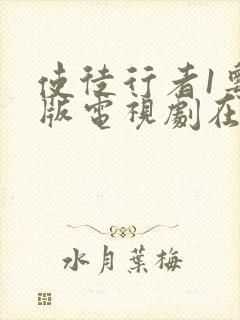 使徒行者1粵
版電視劇在
水月葉梅